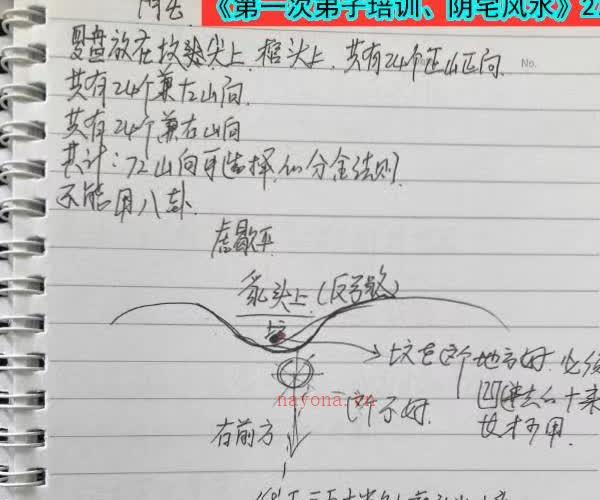 《第一次弟子培训、阴宅风水》2
罗盘放在坟头尖上,棺头上,共有24个正山正向.
No.
共有24个兼左山向.
共有24个兼右山向
共计:72山向可选择,以分金法则.
不能用八卦.
头上(反弓路)
坟
坟在这个地方好,必须
凹进去几十米
这个不好.
才可用.
nayona.cn
右前方